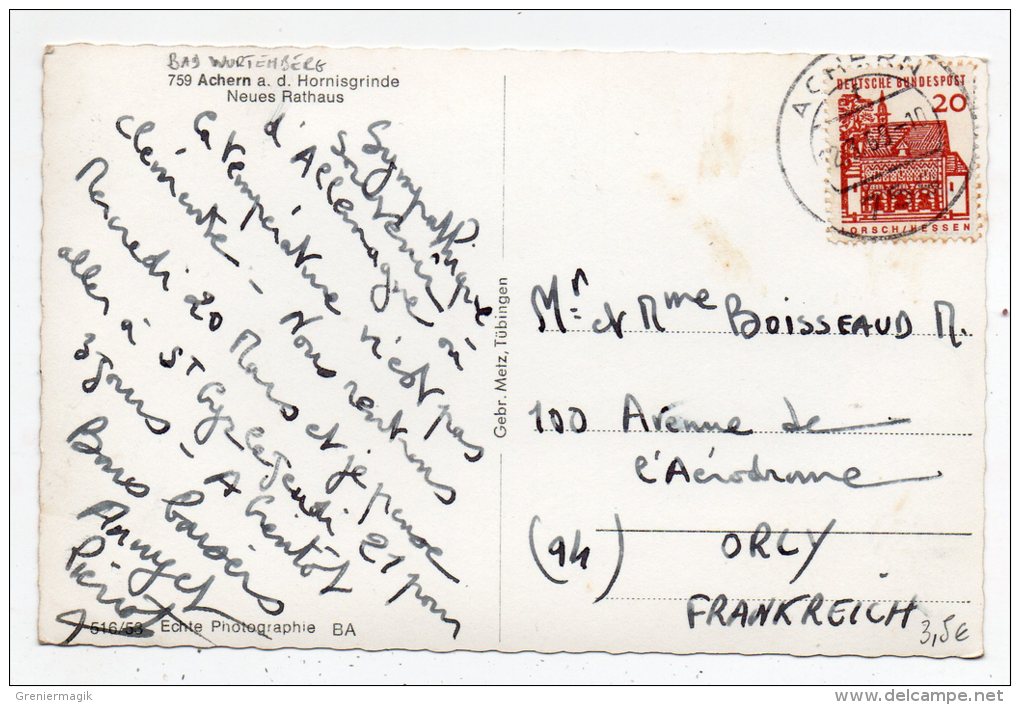 BAD WURTEMBERG
759 Achern a. d. Hornisgrinde
Neues Rathaus
Sympathique
souvenir
d'Allemagne où
la température n'est pas
clémente - Nous rentrons
Mercredi 20 Mars et je pense
aller à St Cyr le jeudi 21 pour
3 jours - A bientôt
Bons baisers
Anny et
Pierrot
516/53 Echte Photographie BA
Gebr. Metz, Tübingen
ACHERN
DEUTSCHE BUNDESPOST
20
LORSCH/HESSEN
Mr et Mme BOISSEAUD M.
100 Avenue de
l'Aérodrome
(94) ORLY
FRANKREICH
3,5€
Greniermagik
delcampe.net